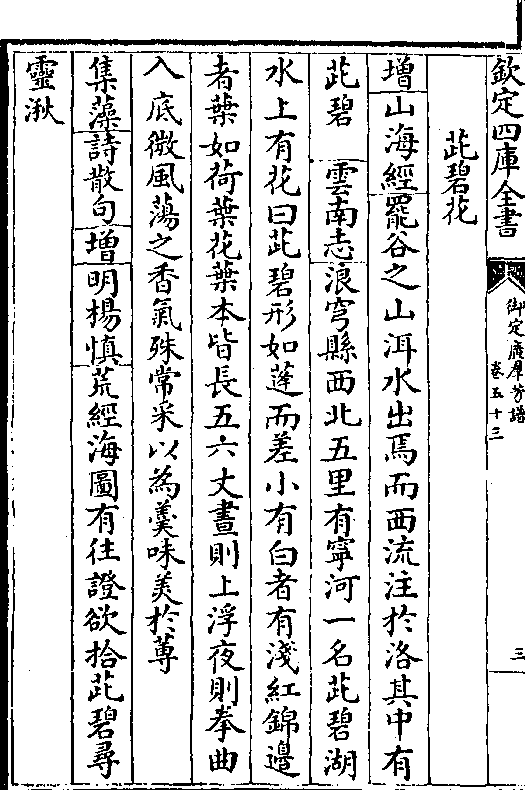 欽定四庫全書
御定廣羣芳譜
卷五十三
三
茈碧花
增山海經罷谷之山洱水出焉而西流注於洛其中有
茈碧 雲南志浪穹縣西北五里有寧河一名茈碧湖
水上有花曰茈碧形如蓮而差小有白者有淺紅錦邉
者葉如荷葉花葉本皆長五六丈晝則上浮夜則拳曲
入底微風蕩之香氣殊常采以為羹味美於蓴
集藻詩散句增明楊慎荒經海圖有往證欲拾茈碧尋
靈湫